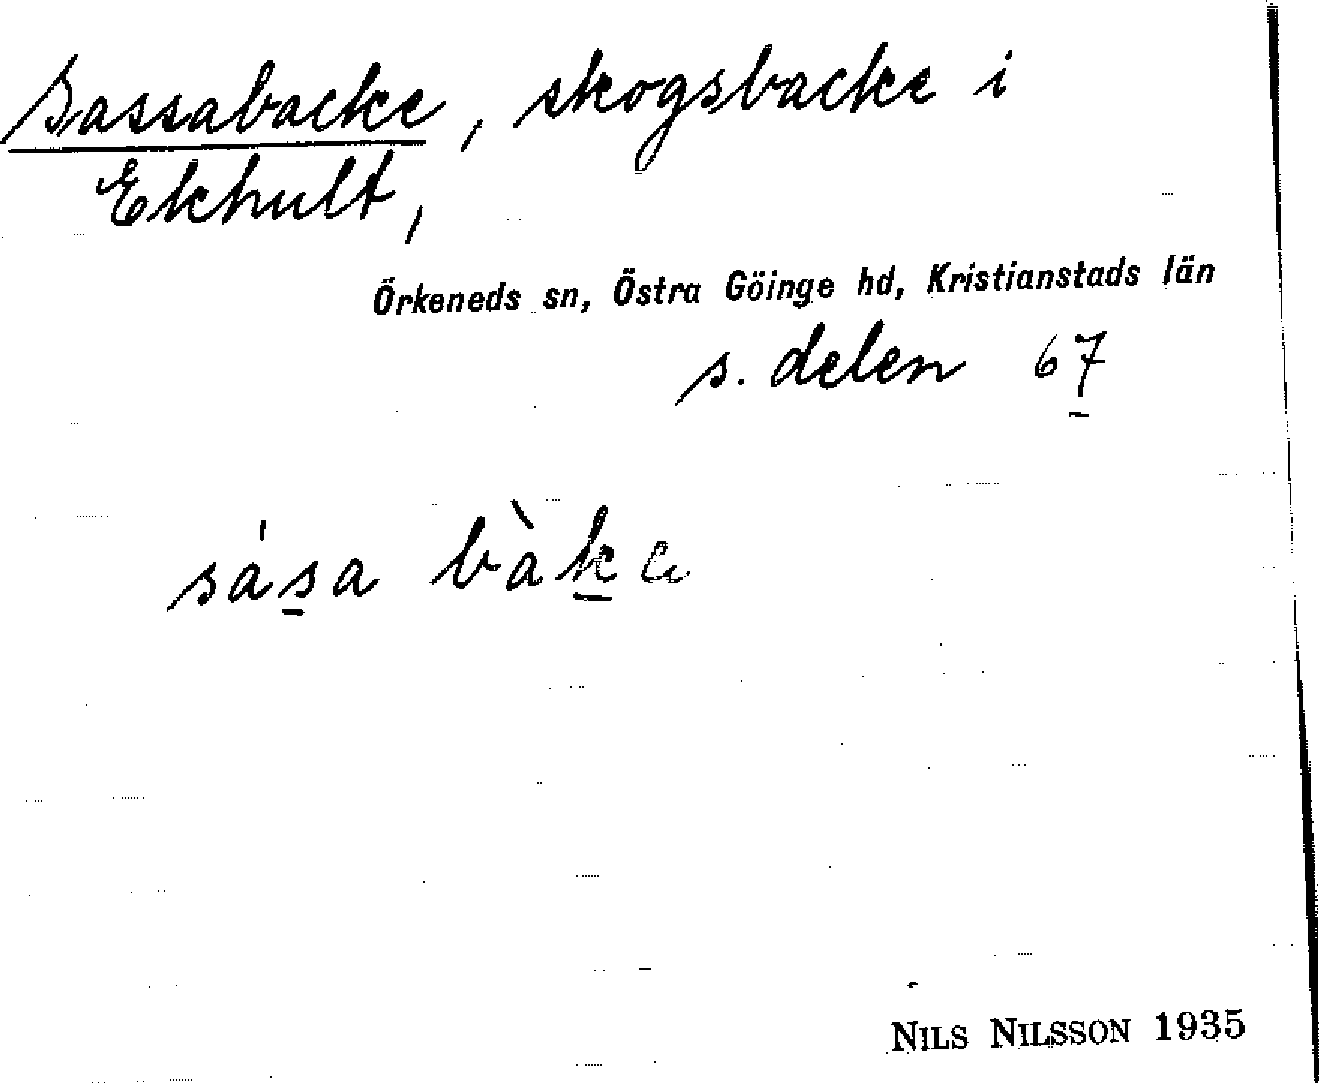 Sassabacke, skogsbacke i
Ekhult,
Örkeneds sn, Östra Göinge hd, Kristianstads län
s. delen 67
sása bàka
NILS NILSSON 1935